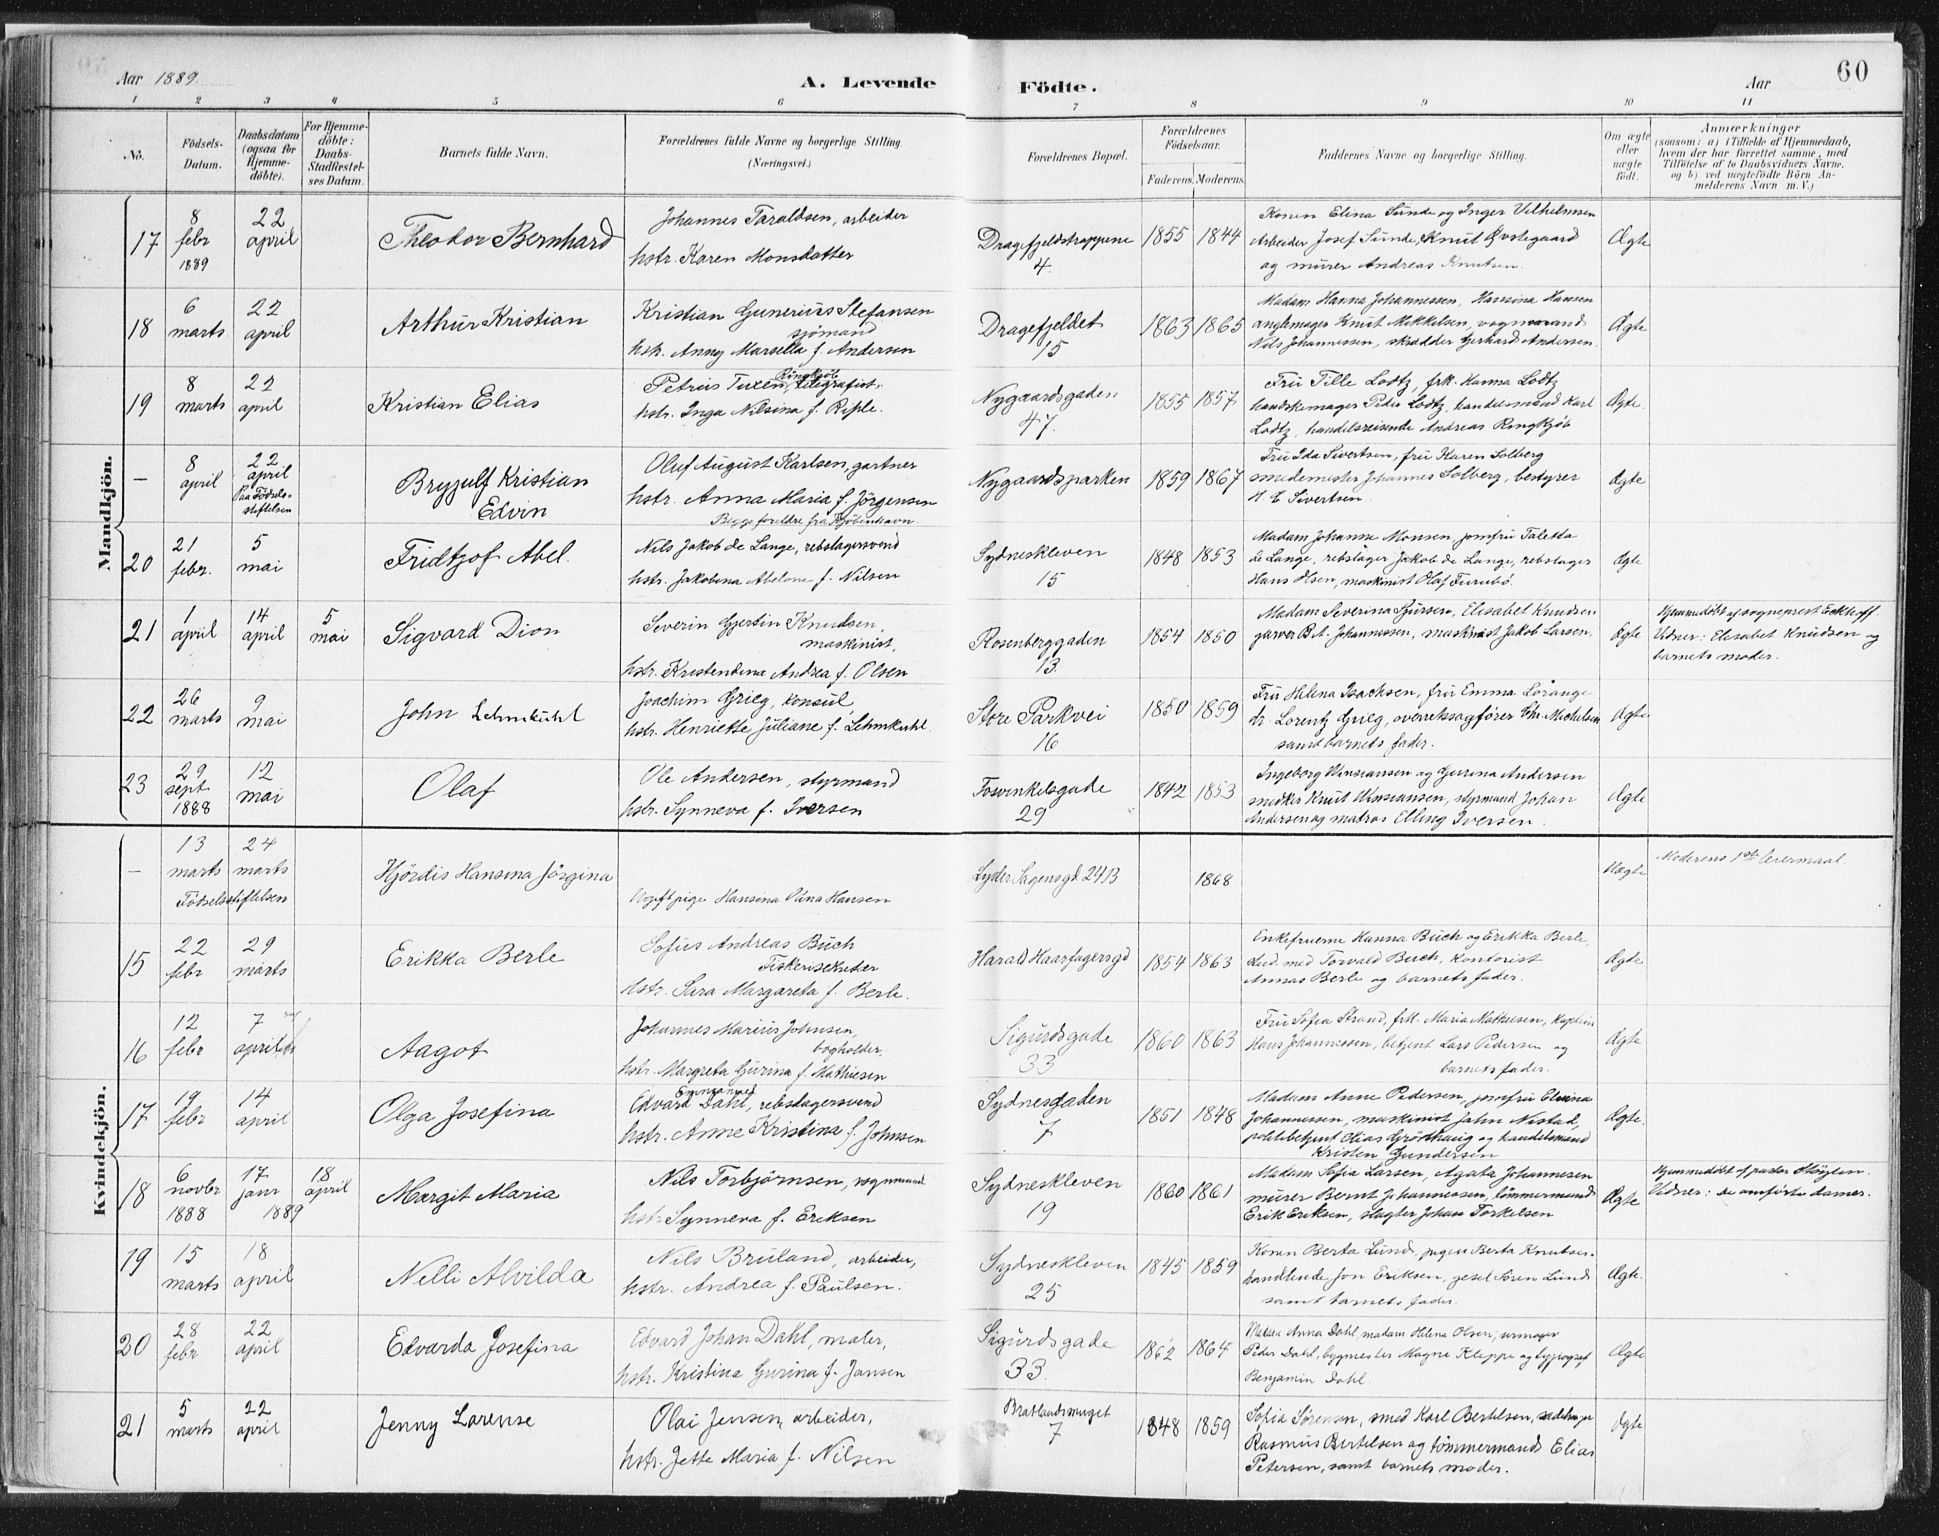 Aar 1889.
A. Levende Födte.
Aar
60
1 2 3 4 5 6 7 8 9 10 11
No.
Födsels-Datum.
Daabsdatum (ogsaa for Hjemme-döbte).
For Hjemme-döbte: Daabs-Stadfæstel-ses Datum.
Barnets fulde Navn.
Forældrenes fulde Navne og borgerlige Stilling (Næringsvei.)
Forældrenes Bopæl.
Forældrenes Födselsaar.
Faderens. Moderens.
Faddernes Navne og borgerlige Stilling.
Om ægte eller uægte födt.
Anmærkninger
(saasom: a) i Tilfælde af Hjemmedaab, hvem der har forrettet samme, med Tilföielse af to Daabsvidners Navne, og b) ved uægtefödte Börn An-melderens Navn m. V.)
Mandkjön.
17 8 febr 1889 22 april Theodor Bernhard
Johannes Taraldsen, arbeider
hstr. Karen Monsdatter
Dragefjeldstrappene 4 1855 1844
Konen Elena Sunde og Inger Vilhelmsen
Arbeider Josef Sunde, Knut Øvstegaard
og murer Andreas Knutsen.
Ægte
18 6 marts 22 april Arthur Kristian
Kristian Gunerius Stefansen
sjömand
hstr. Anny Marsella f. Andersen
Dragefjeldet 15 1863 1865
Madam Hanna Johannessen, Hansina Hansen
Knut Mikkelsen, vognmand
Nils Johannessen, skrædder Gerhard Andersen.
Ægte
19 8 marts 22 april Kristian Elias
Petrus Tuxen Ringkjöb, telegrafist.
hstr. Inga Nilsina f. Riple.
Nygaardsgaden 47. 1855 1857
Fru Tille Lodtz, frk. Hanna Lodtz
handskemager Peder Lodtz, handelsmand Karl
Lodtz, handelsreisende Andreas Ringkjöb
Ægte.
— 8 april 22 april Paa Fødsels-stiftelsen Brynjulf Kristian Edvin
Oluf August Karlsen, gartner
hstr. Anna Maria f. Jörgensen
Begge foreldre fra Kjöbenhavn.
Nygaardsparken 1859 1867
Fru Ida Sivertsen, fru Karen Solberg
smedemester Johannes Solberg, bestyrer
Sivertsen
Ægte
20 21 febr. 5 mai Fridtjof Abel.
Nils Jakob de Lange, rebslagersvend
hstr. Jakobina Abelone f. Nilsen
Sydneskleven 15 1848 1853
Madam Johanne Monsen, jomfru Taletta
de Lange, rebslager Jakob de Lange, rebslager
Hans Olsen, maskinist Olaf Furubö.
Ægte
21 1 april 14 april 5 mai Sigvard Dion
Severin Gjertin Knudsen,
maskinist,
hstr. Kristendina Andrea f. Olsen
Rosenberggaden 13. 1854 1850
Madam Severina Sjursen, Elisabet Knudsen
garver B.A. Johannessen, maskinist Jakob Larsen.
Ægte
Hjemmedöbt af sogneprest Eckhoff.
Vidner: Elisabet Knudsen og
barnets moder.
22 26 marts 9 mai John Lehmkuhl
Joachim Grieg, konsul,
hstr. Henriette Juliane f. Lehmkuhl.
Store Parkvei 16 1850 1859
Fru Helena Isachsen, fru Emma Lorange
hr. Lorentz Grieg, overretssagförer Chr. Michelsen
samt barnets fader.
Ægte
23 29 sept 1888 12 mai Olaf
Ole Andersen, styrmand
hstr. Synneva f. Iversen
Fosvinkelsgade 29 1842 1853
Ingeborg og Gurina Andersen
Knut styrmand Johan
Andersen og matros Elling Iversen.
Ægte
Kvindekjön.
— 13 marts 24 marts Födselsstiftelsen Hjördis Hansina Jörgina
Ugift pige Hansina Olina Hansen
Lyder Sagensgd 24B 1868
Uægte
Moderens 1ste leiermaal
15 22 febr 29 marts Erikka Berle
Sofus Andreas Buch
Fiskeriselskaber
hstr. Sara Margareta f. Berle.
Harald Haarfagersgd 1854 1863
Enkefruerne Hanna Buch og Erikka Berle,
stud. med Torvald Buch, kontorist
Annas Berle og barnets fader.
Ægte
16 12 febr 7 april Aagot
Johannes Marius Johnsen,
bogholder,
hstr. Margreta Gurina f. Mathiesen
Sigurdsgade 33 1860 1863
Fru Sofia Strand, frk. Maria Mathiesen, kaptein
Hans Johannessen, betjent Lars Pedersen og
barnets fader.
Ægte
17 19 febr 14 april Olga Josefina
Edvard Emmanuel Dahl, rebslagersvend
hstr. Anne Kristina f. Johnsen
Sydnesgaden 7 1851 1848
Madam Anne Pedersen, jomfru Elvina
Johannessen, maskinist Jahn Nistad,
politibetjent Elias Grösthaug og handelsmand
Kristen Gundersen
Ægte.
18 6 novbr 1888 17 janr 1889 18 april Margit Maria
Nils Torbjörnsen, vognmand
hstr. Synneva f. Eriksen
Sydneskleven 19 1860 1861
Madam Sofia Larsen, Agata Johannesen
murer Bernt Johannessen, tömmermand
Erik Eriksen, slagter Johan Torkelsen
Ægte
Hjemmedöbt af pastor Stöylen.
Vidner: de anförte damer.
19 15 marts 18 april Nelli Alvilda
Nils Bruland, arbeider,
hstr. Andrea f. Paulsen.
Sydneskleven 25 1845 1859
Konen Berta Lund, pigen Berta Knutsen.
handlende Jon Eriksen, gesel Sören Lund
samt barnets fader.
Ægte.
20 28 febr 22 april Edvarda Josefina
Edvard Johan Dahl, maler,
hstr. Kristina Gurina f. Jansen
Sigurdsgade 33. 1862 1864
Madam Anna Dahl, madam Helena Olsen, urmager
Peder Dahl, bygmester Magne Kleppe og typograf
Benjamin Dahl.
Ægte
21 5 marts 22 april Jenny Larense
Olai Jensen, arbeider,
hstr. Jette Maria f. Nilsen
Bratlandsmuget 7 1848 1859
Sofia Sörensen, smed Karl Bertelsen,
Rasmus Bertelsen og tömmermand Elias
Petersen, samt barnets moder.
Ægte